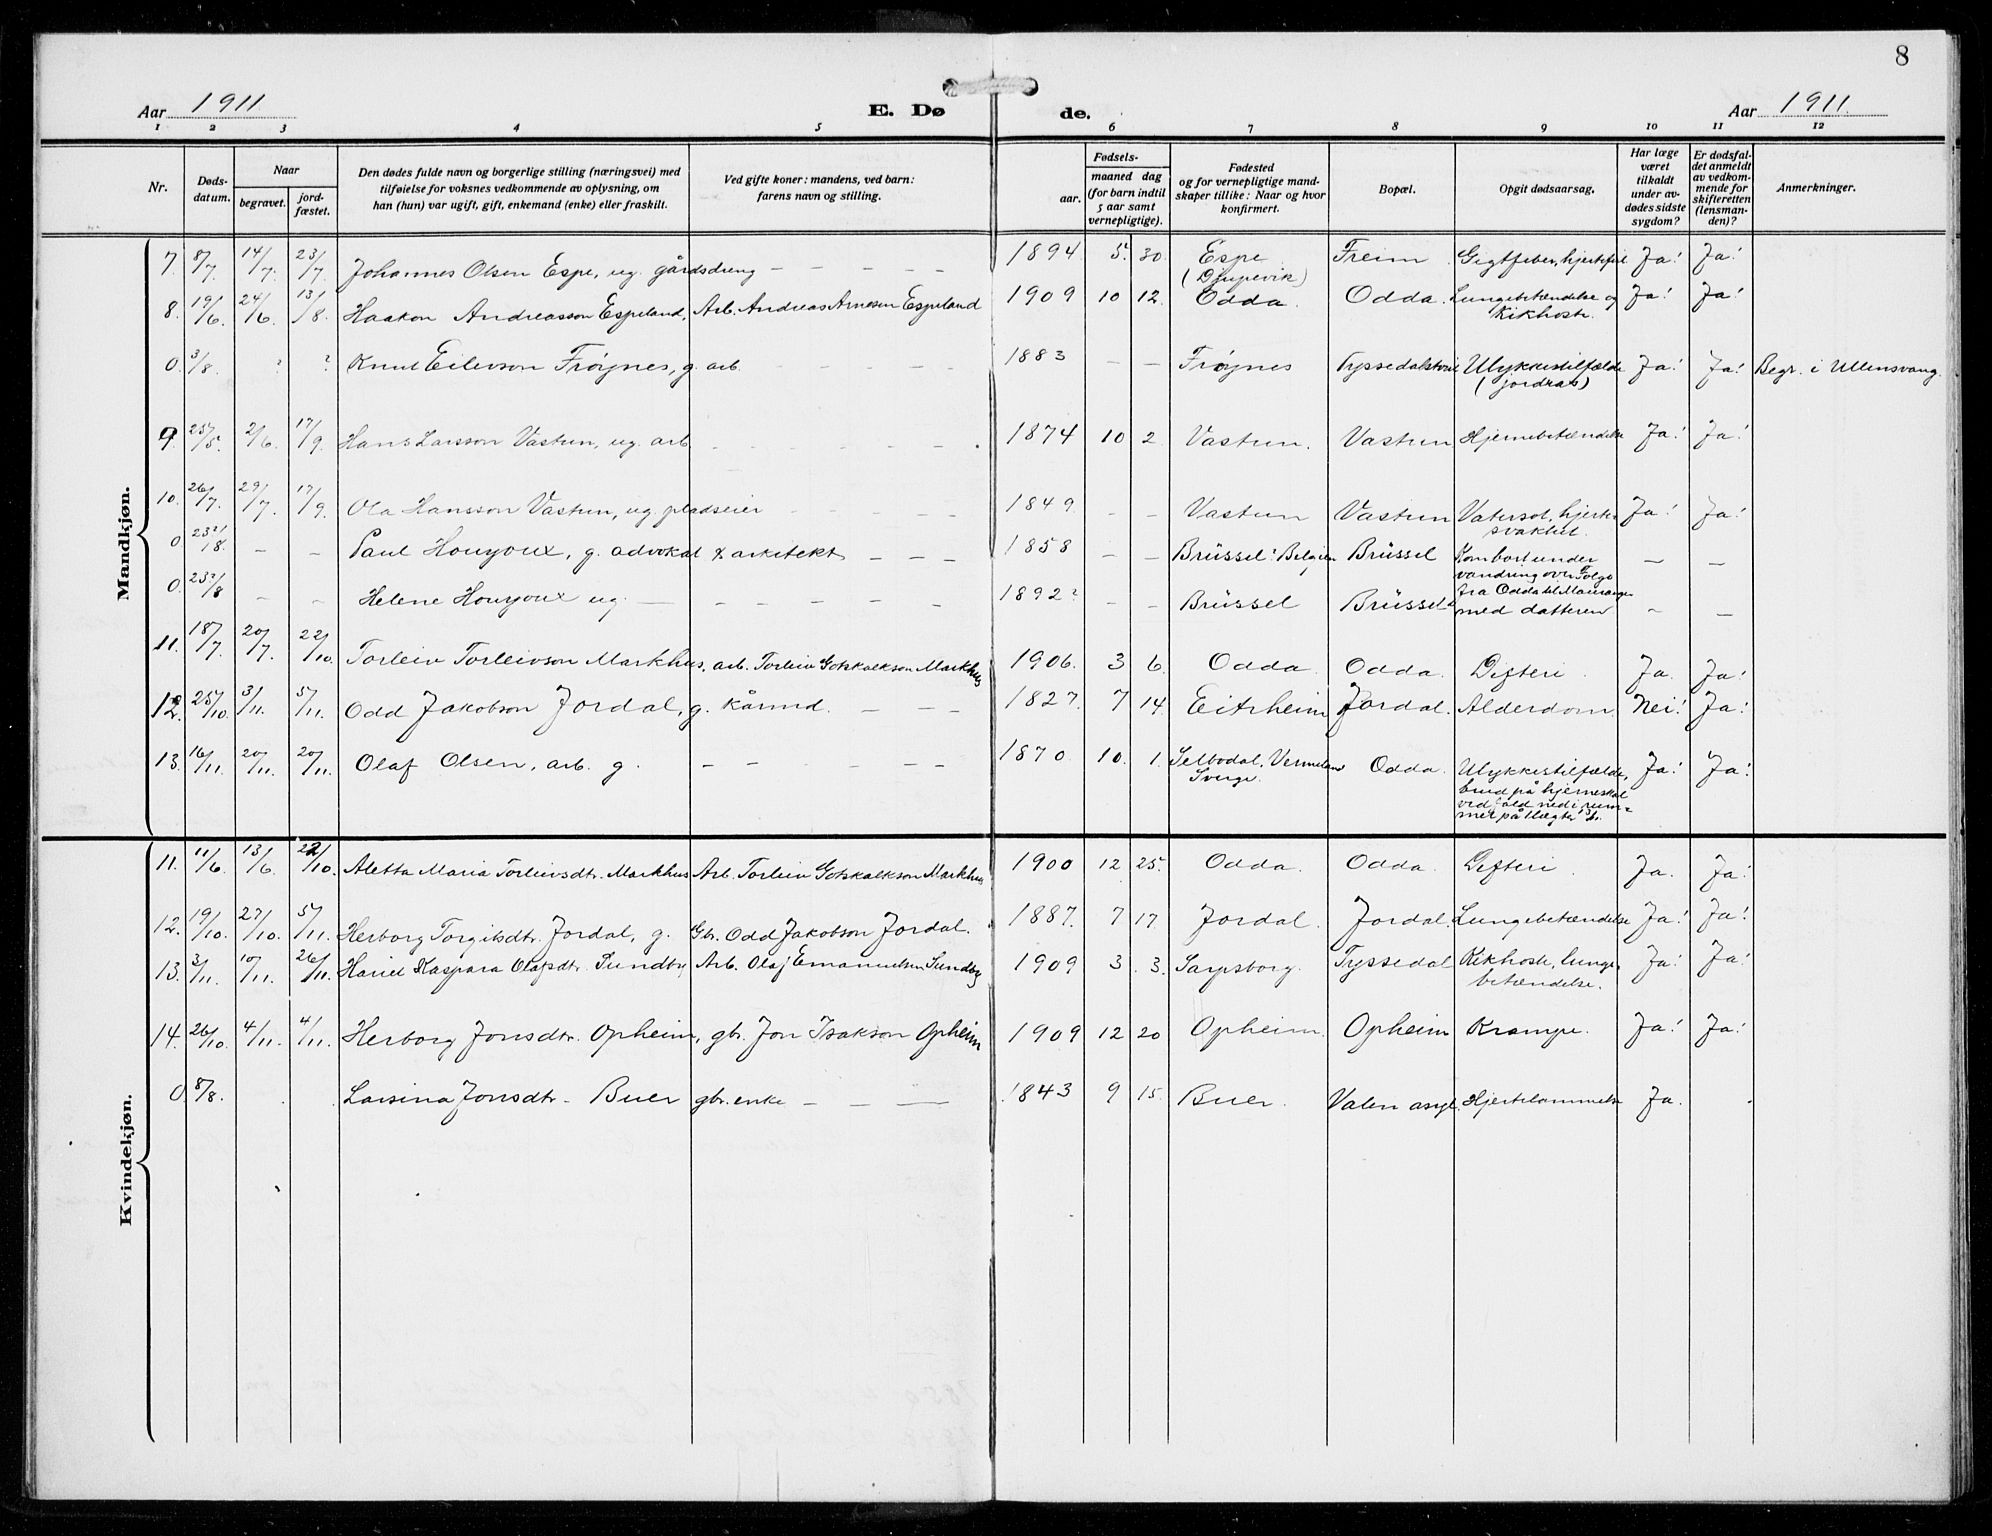 8
Aar 1911 E. Dø de. Aar 1911.
1 2 3 4 5 6 7 8 9 10 11 12
Nr. Døds-datum. Naar begravet. jord-fæstet. Den dødes fulde navn og borgerlige stilling (næringsvei) med tilføielse for voksnes vedkommende av oplysning, om han (hun) var ugift, gift, enkemand (enke) eller fraskilt. Ved gifte koner: mandens, ved barn: farens navn og stilling. Fødsels- aar. maaned dag (for barn indtil 5 aar samt vernepligtige). Fødested og for vernepligtige mandskaper tillike: Naar og hvor konfirmert. Bopæl. Opgit dødsaarsag. Har læge været tilkaldt under avdødes sidste sygdom? Er dødsfaldet anmeldt av vedkommende for skifteretten (lensmanden)? Anmerkninger.
Mandkjøn.
7. 8/7 14/7. 23/7. Johannes Olsen Espe, ug. gårdsdreng – – – – – 1894 5. 30. Espe (Djupevik) Freim Gigtfeber, hjertefeil Ja! Ja!
8. 19/6. 24/6. 13/8. Haakon Andreasson Espeland, Arb. Andreas Arnesen Espeland 1909 10 12. Odda. Odda. Lungebetændelse og Kikhoste. Ja! Ja!
0. 3/8. ? ? Knut Eilevson Frøynes, g. arb. – – – – – 1883 – – Frøynes Tyssedalstrand Ulykkestilfælde (jordras) Ja! Ja! Begr. i Ullensvang.
9. 25/5. 2/6. 17/9. Hans Larsson Vastun, ug. arb. – – – – – 1874 10 2 Vastun. Vastun Hjernebetændelse Ja! Ja!
10. 26/7. 29/7. 17/9. Ola Hansson Vastun, ug. pladseier – – – – 1849. – – Vastun Vastun Vatersot, hjertesvakhet. Ja! Ja!
0. 23?/8. – – Paul Houyoux, g. advokat & arkitekt – – – 1858 – – Brüssel? Belgien Brüssel Kom bort under vandring over Folgef. fra Odda til Mauranger med datteren – –
0. 23?/8 – – Helene Houyoux ug. – – – – – 1892? – – Brüssel Brüssel – –
11. 18/7. 20/7. 22/10. Torleiv Torleivson Markhus, arb. Torleiv Gotskalkson Markhus 1906. 3 6. Odda Odda. Difteri. Ja. Ja!
12. 25/10. 3/11. 5/11. Odd Jakobson Jordal, g. kårmd. – – – 1827. 7 14. Eitrheim Jordal. Alderdom. Nei! Ja!
13. 16/11. 20/11. 20/11. Olaf Olsen, arb. g. – – – – – 1870 10. 1. Selbodal, Vermeland Sverge. Odda. Ulykkestilfælde, brud på hjerneskal ved fald ned i rummet på Ja! Ja!
Kvindekjøn.
11. 11/6. 13/6. 22/10. Aletta Maria Torleivsdtr. Markhus Arb. Torleiv Gotskalkson Markhus 1900 12 25. Odda. Odda. Difteri. Ja. Ja!
12. 19/10. 27/10. 5/11. Herborg Torgilsdtr. Jordal, g. Gbr. Odd Jakobson Jordal. 1887. 7 17. Jordal. Jordal. Lungebetændelse Ja! Ja!
13. 3/11. 10/11. 26/11. Kaspara Olafsdtr. Sundby Arb. Olaf Emanuelsen Sundby 1909 3 3. Sarpsborg. Tyssedal Kikhoste, lungebetændelse. Ja! Ja!
14. 26/10. 4/11. 4/11. Herborg Jonsdtr. Opheim, gbr. Jon Isakson Opheim 1909 12 20 Opheim. Opheim Krampe. Ja! Ja!
0 8/8. Larsina Jonsdtr. – Buer gbr. enke – – – 1843 9 15. Buer. Valen asyl. Hjertelammelse Ja.